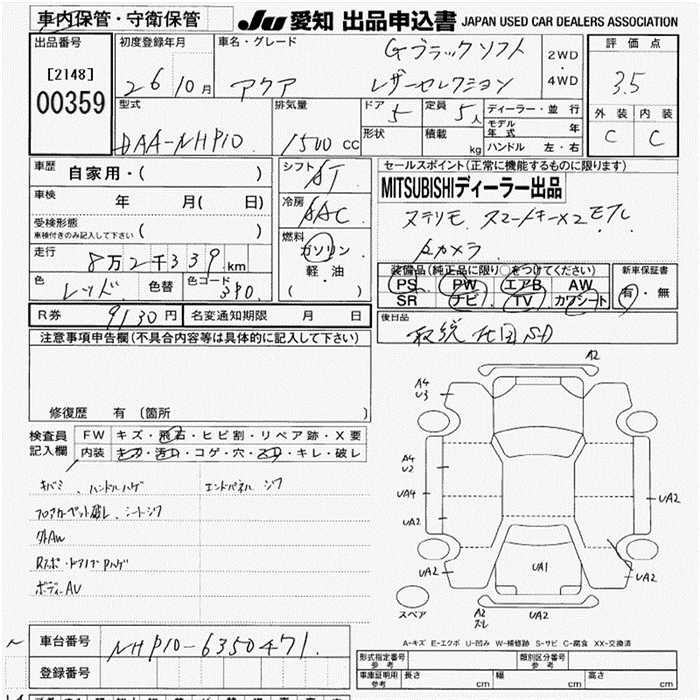 車内保管・守衛保管
JU 愛知 出品申込書 JAPAN USED CAR DEALERS ASSOCIATION
出品番号
[2148]
00359
初度登録年月
26 10月
車名・グレード
アクア
Gブラックソフト
レザーセレクション
2WD
4WD
評価点
3.5
外装 内装
C C
型式
DAA-NHP10
排気量
1500 cc
ドア 5
形状
定員 5人
積載 kg
ディーラー・並行
モデル年式 年
ハンドル 左・右
車歴 自家用・( )
車検 年 月( 日)
受検形態
車検付きのみ記入して下さい ( )
走行 8万2千339km
色 レッド 色替 色コード 3P0
シフト AT
冷房 AAC
燃料
ガソリン
軽・油
( )
セールスポイント(正常に機能するものに限ります)
MITSUBISHIディーラー出品
ステリモ スマートキー×2 ETC
Bカメラ
装備品(純正品に限り○をつけてください)
PS PW エアB AW
SR ナビ TV カワシート
新車保証書
有・無
R券 9130円 名変通知期限 月 日
後日品
取説 地図SD
注意事項申告欄(不具合内容等は具体的に記入して下さい)
修復歴 有 (箇所 )
検査員記入欄
FW キズ・飛石・ヒビ割・リペア跡・X要
内装 キズ・汚れ・コゲ・穴・スレ・キレ・破レ
キバミ、ハンドルハゲ エンドパネル シワ
フロアカーペット破レ、シートシワ
外AW
Rスポ・ドアノブPハゲ
ボディーAV
A2
A4
U3
A4
U2
UA4
UA2
UA2
UA2
UA1
UA2
UA2
A2
スレ
スペア
A-キズ E-エクボ U-凹み W-補修跡 S-サビ C-腐食 XX-交換済
車台番号 NHP10-6350471
登録番号
形式指定番号 参考
類別区分番号 参考
車庫証明用 参考 長さ cm 幅 cm 高さ cm